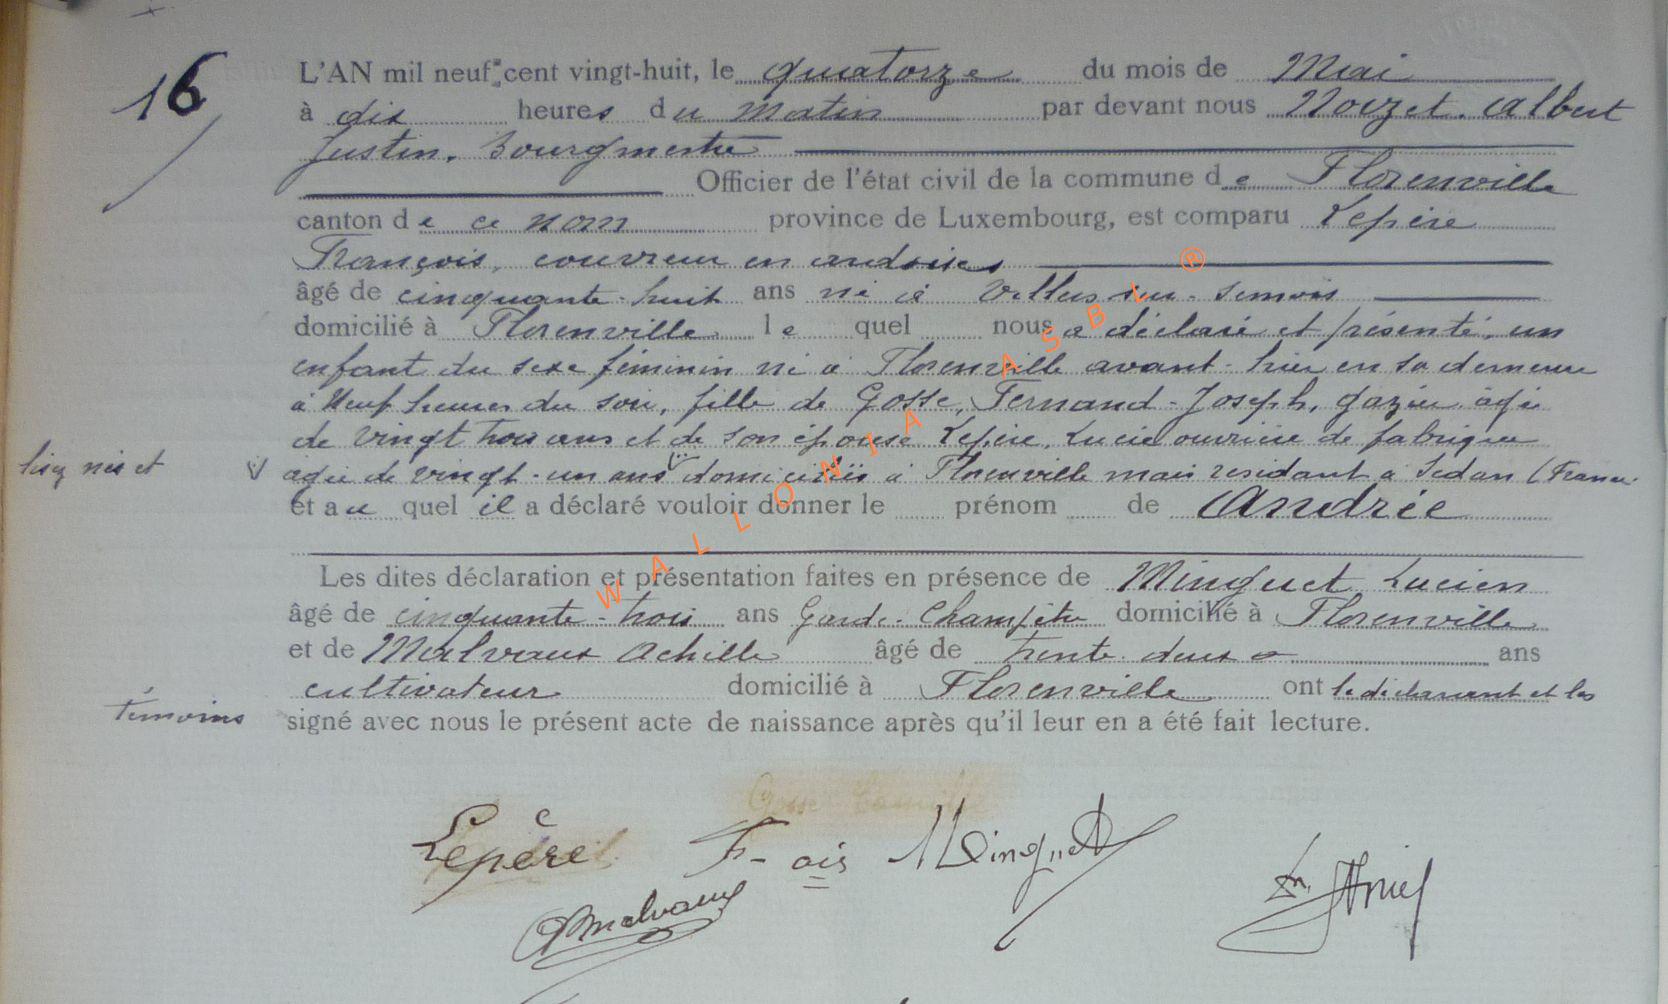 16
L'AN mil neuf cent vingt-huit, le quatorze du mois de Mai
à dix heures du matin par devant nous Noizet. Albert
Justin. Bourgmestre
Officier de l'état civil de la commune de Florenville
canton de ce nom province de Luxembourg, est comparu Lepère
François, couvreur en ardoises
âgé de cinquante-huit ans né à Villers sur-Semois
domicilié à Florenville le quel nous a déclaré et présenté, un
enfant du sexe féminin né à Florenville avant-hier en sa demeure
à Neuf heures du soir, fille de Gosse, Fernand-Joseph, gazier âgé
de vingt trois ans et de son épouse Lepère, Lucie ouvrière de fabrique
lisez nés et
agée de vingt-un ans domiciliés à Florenville mais résidant à Sedan (France
et au quel il a déclaré vouloir donner le prénom de Andrée
Les dites déclaration et présentation faites en présence de Minguet Lucien
âgé de cinquante-trois ans Garde-Champêtre domicilié à Florenville
et de Malvaux Achille âgé de trente-deux ans
cultivateur domicilié à Florenville ont le déclarant et les
témoins signé avec nous le présent acte de naissance après qu'il leur en a été fait lecture.
Lepère F-ois Minguet
AMalvaux
WALLONIA ASBL ®